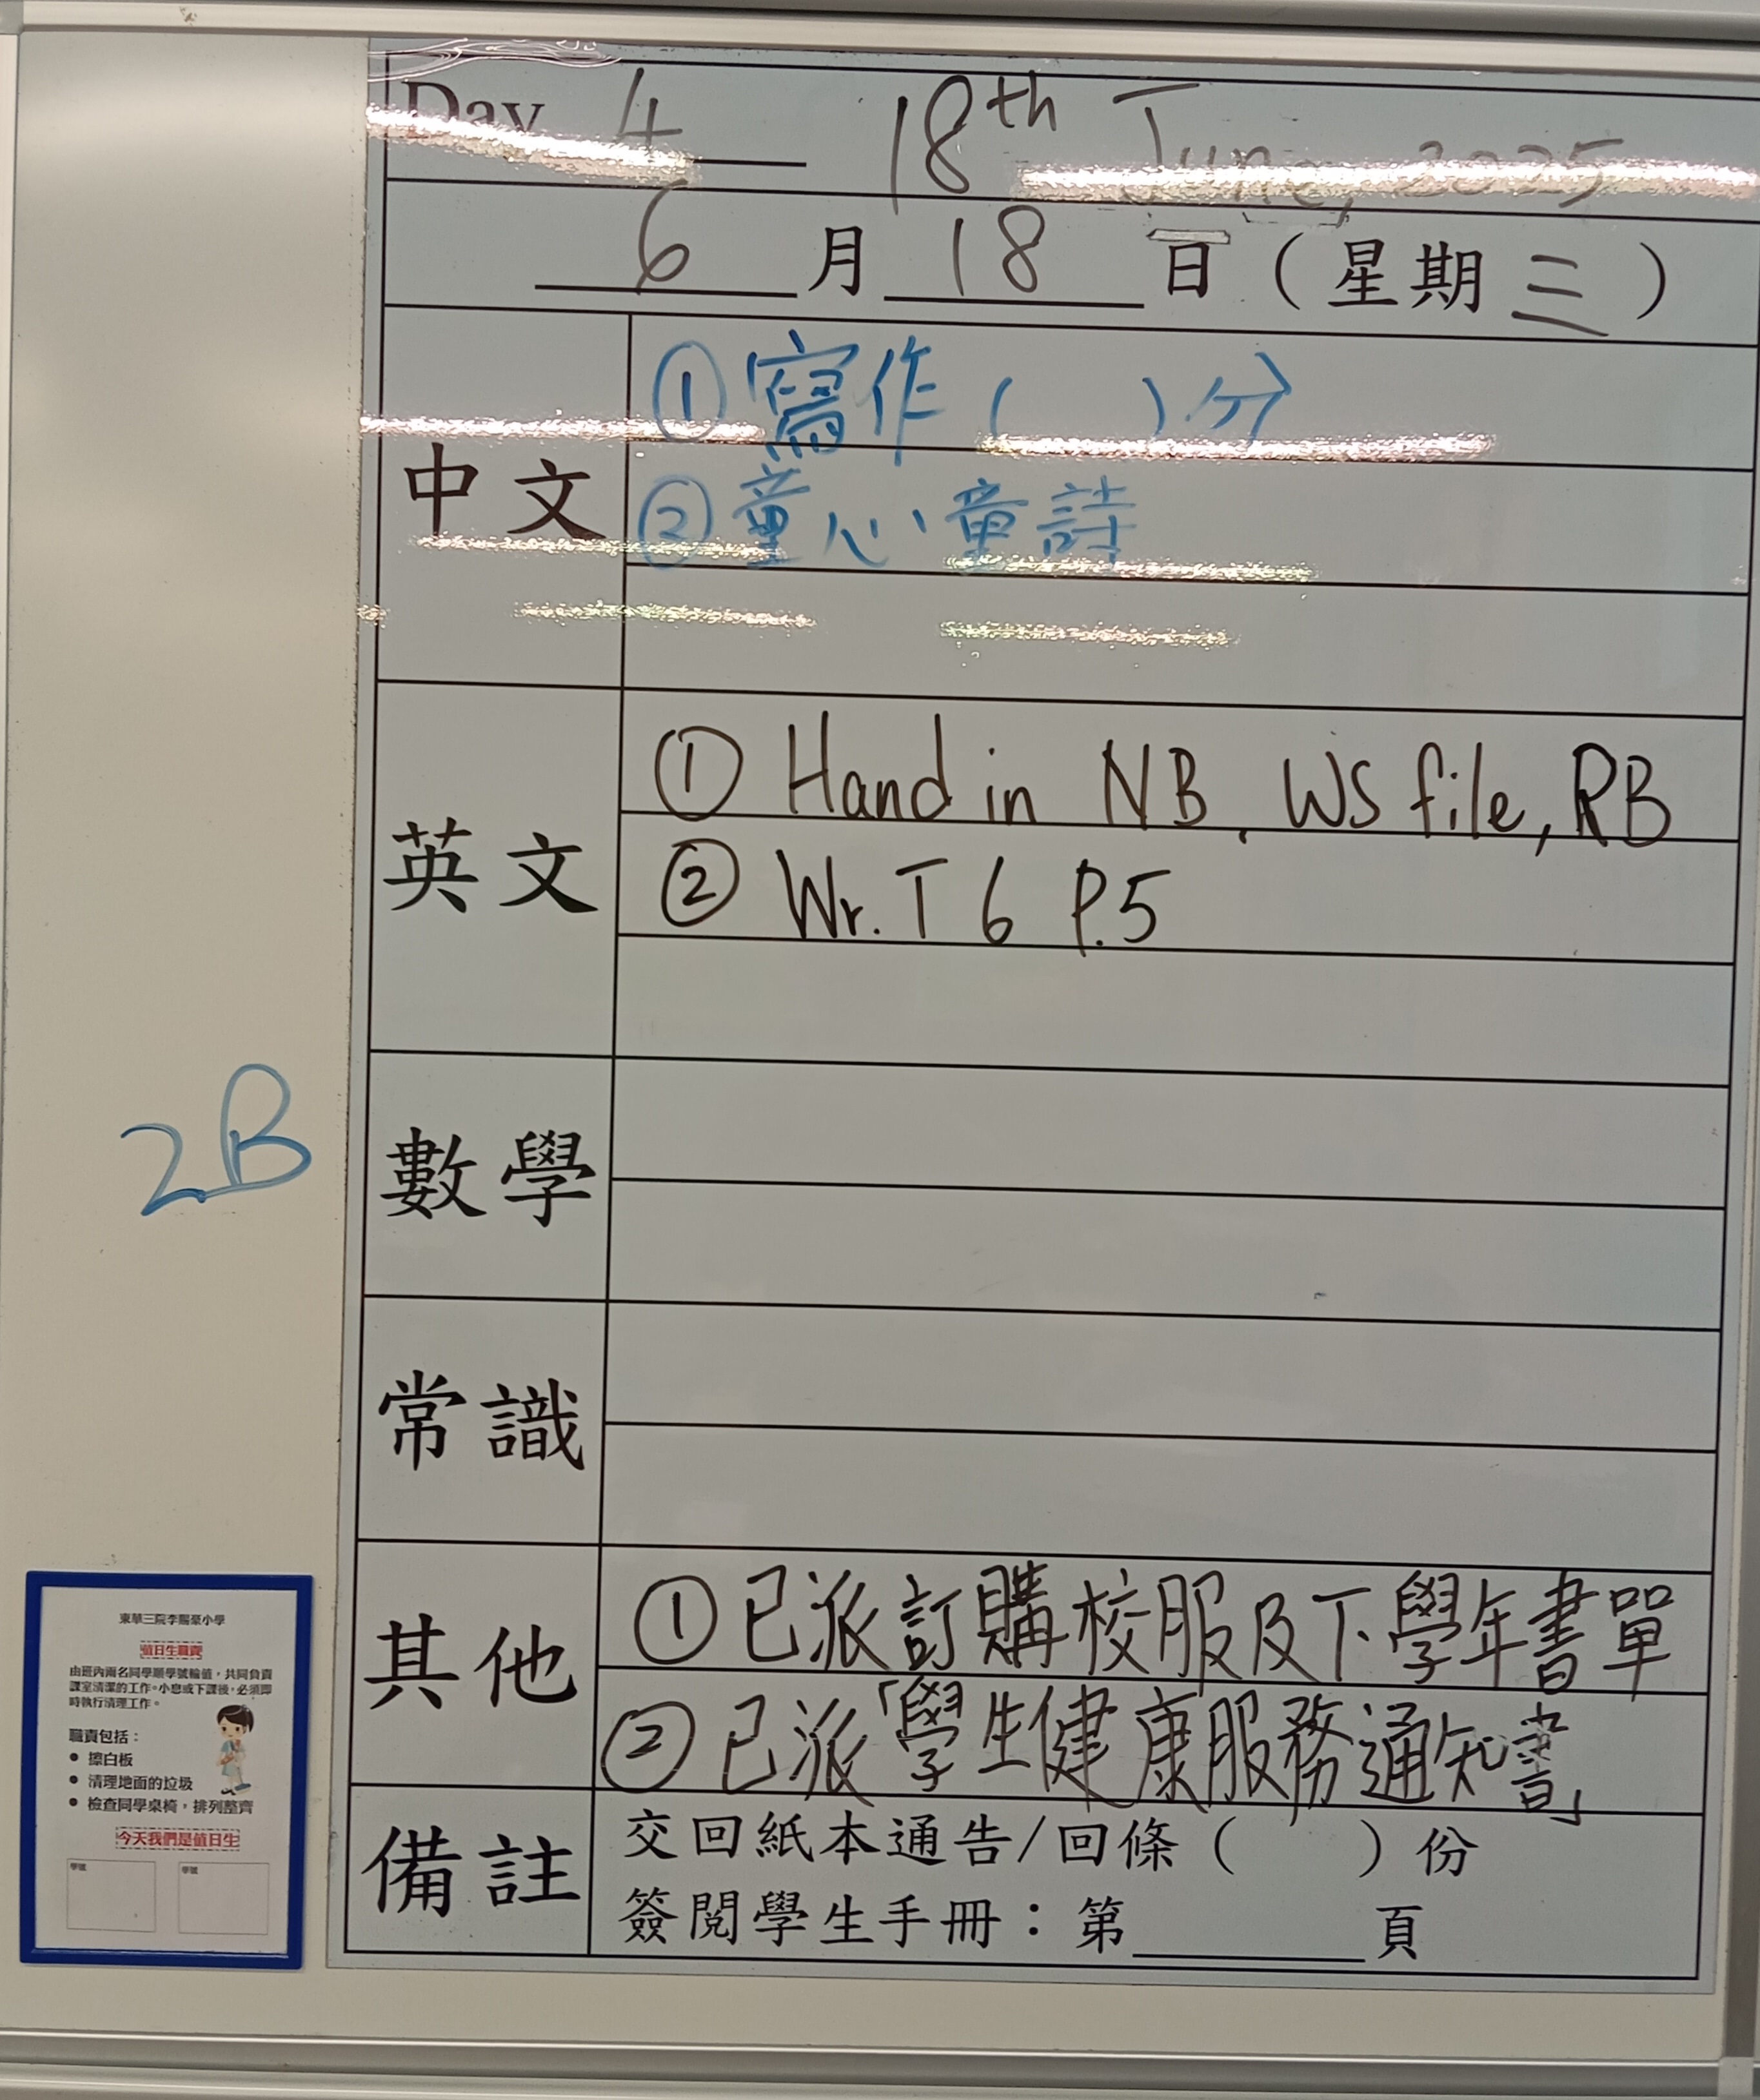 Day 4 18th June, 2025
6 月 18 日 (星期三)
中文
① 寫作 ( ) 分
② 童心童詩
英文
① Hand in NB, WS file, RB
② Wr. T 6 P.5
數學
常識
其他
① 已派訂購校服及下學年書單
② 已派「學生健康服務通知書」
備註
交回紙本通告/回條 ( ) 份
簽閱學生手冊:第______頁
2B
東華三院李賜豪小學
值日生職責
由班內兩名同學順學號輪值,共同負責
課室清潔的工作。小息或下課後,必須即
時執行清理工作。
職責包括:
● 擦白板
● 清理地面的垃圾
● 檢查同學桌椅,排列整齊
今天我們是值日生
學號 學號